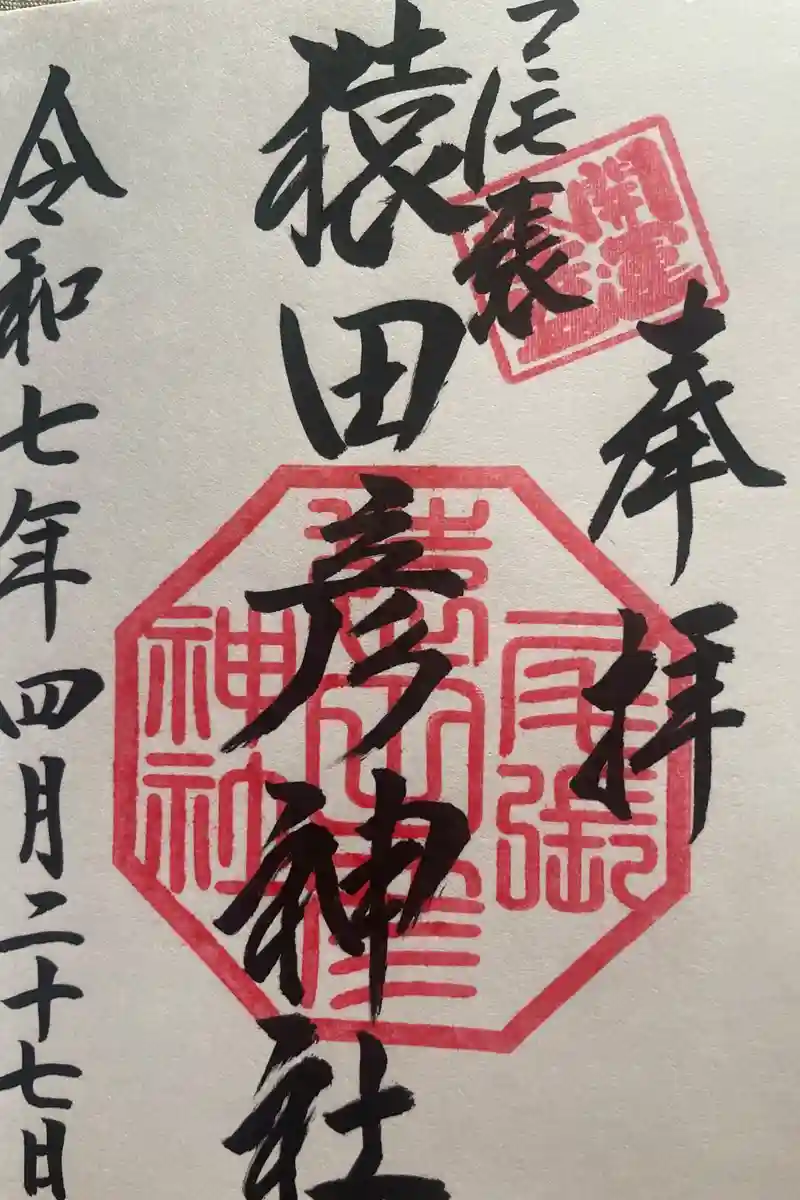 奉拝
開運
尾張
猿田彦神社
尾張
猿田彦
神社
令和七年四月二十七日